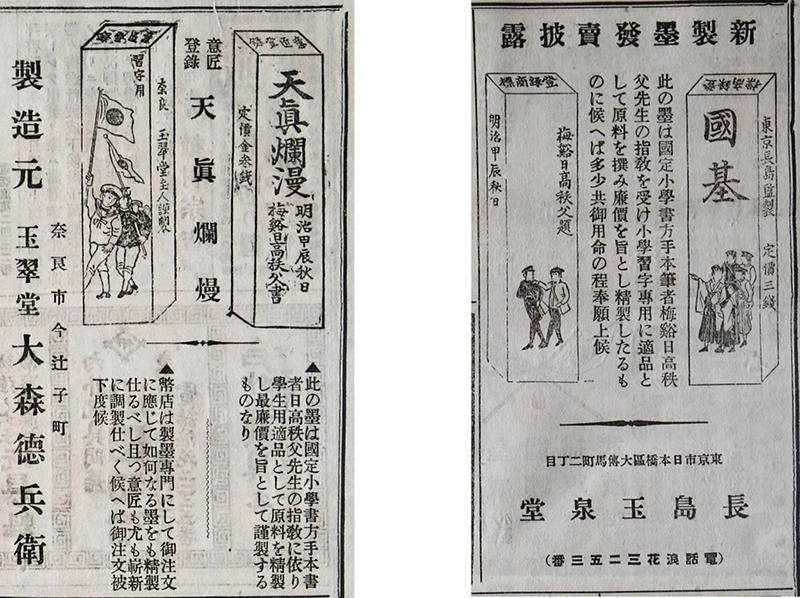 意匠登錄
天眞爛漫
定價金参錢
明治甲辰秋日
梅谿日高秩父書
意匠登錄
天眞爛熳
意匠登錄
習字用
奈良 玉翠堂主人謹製
▲此の墨は國定小學書方手本書
者日高秩父先生の指敎に依り
學生用適品として原料を精製
し最廉價を旨として謹製する
ものなり
▲幣店は製墨專門にして御注文
に應じて如何なる墨をも精製
仕るべし且つ意匠も尤も嶄新
に調製仕べく候へば御注文被
下度候
奈良市今辻子町
製造元 玉翠堂大森德兵衛
新製墨發賣披露
登錄商標
東京長島監製 定價三錢
國基
此の墨は國定小學書方手本筆者梅谿日高秩
父先生の指敎を受け小學習字專用に適品と
して原料を撰み廉價を旨とし精製したるも
のに候へば多少共御用命の程奉願上候
登錄商標
梅谿日高秩父題
明治甲辰秋日
東京市日本橋區大傳馬町二丁目
長島玉泉堂
(電話浪花三二五三番)